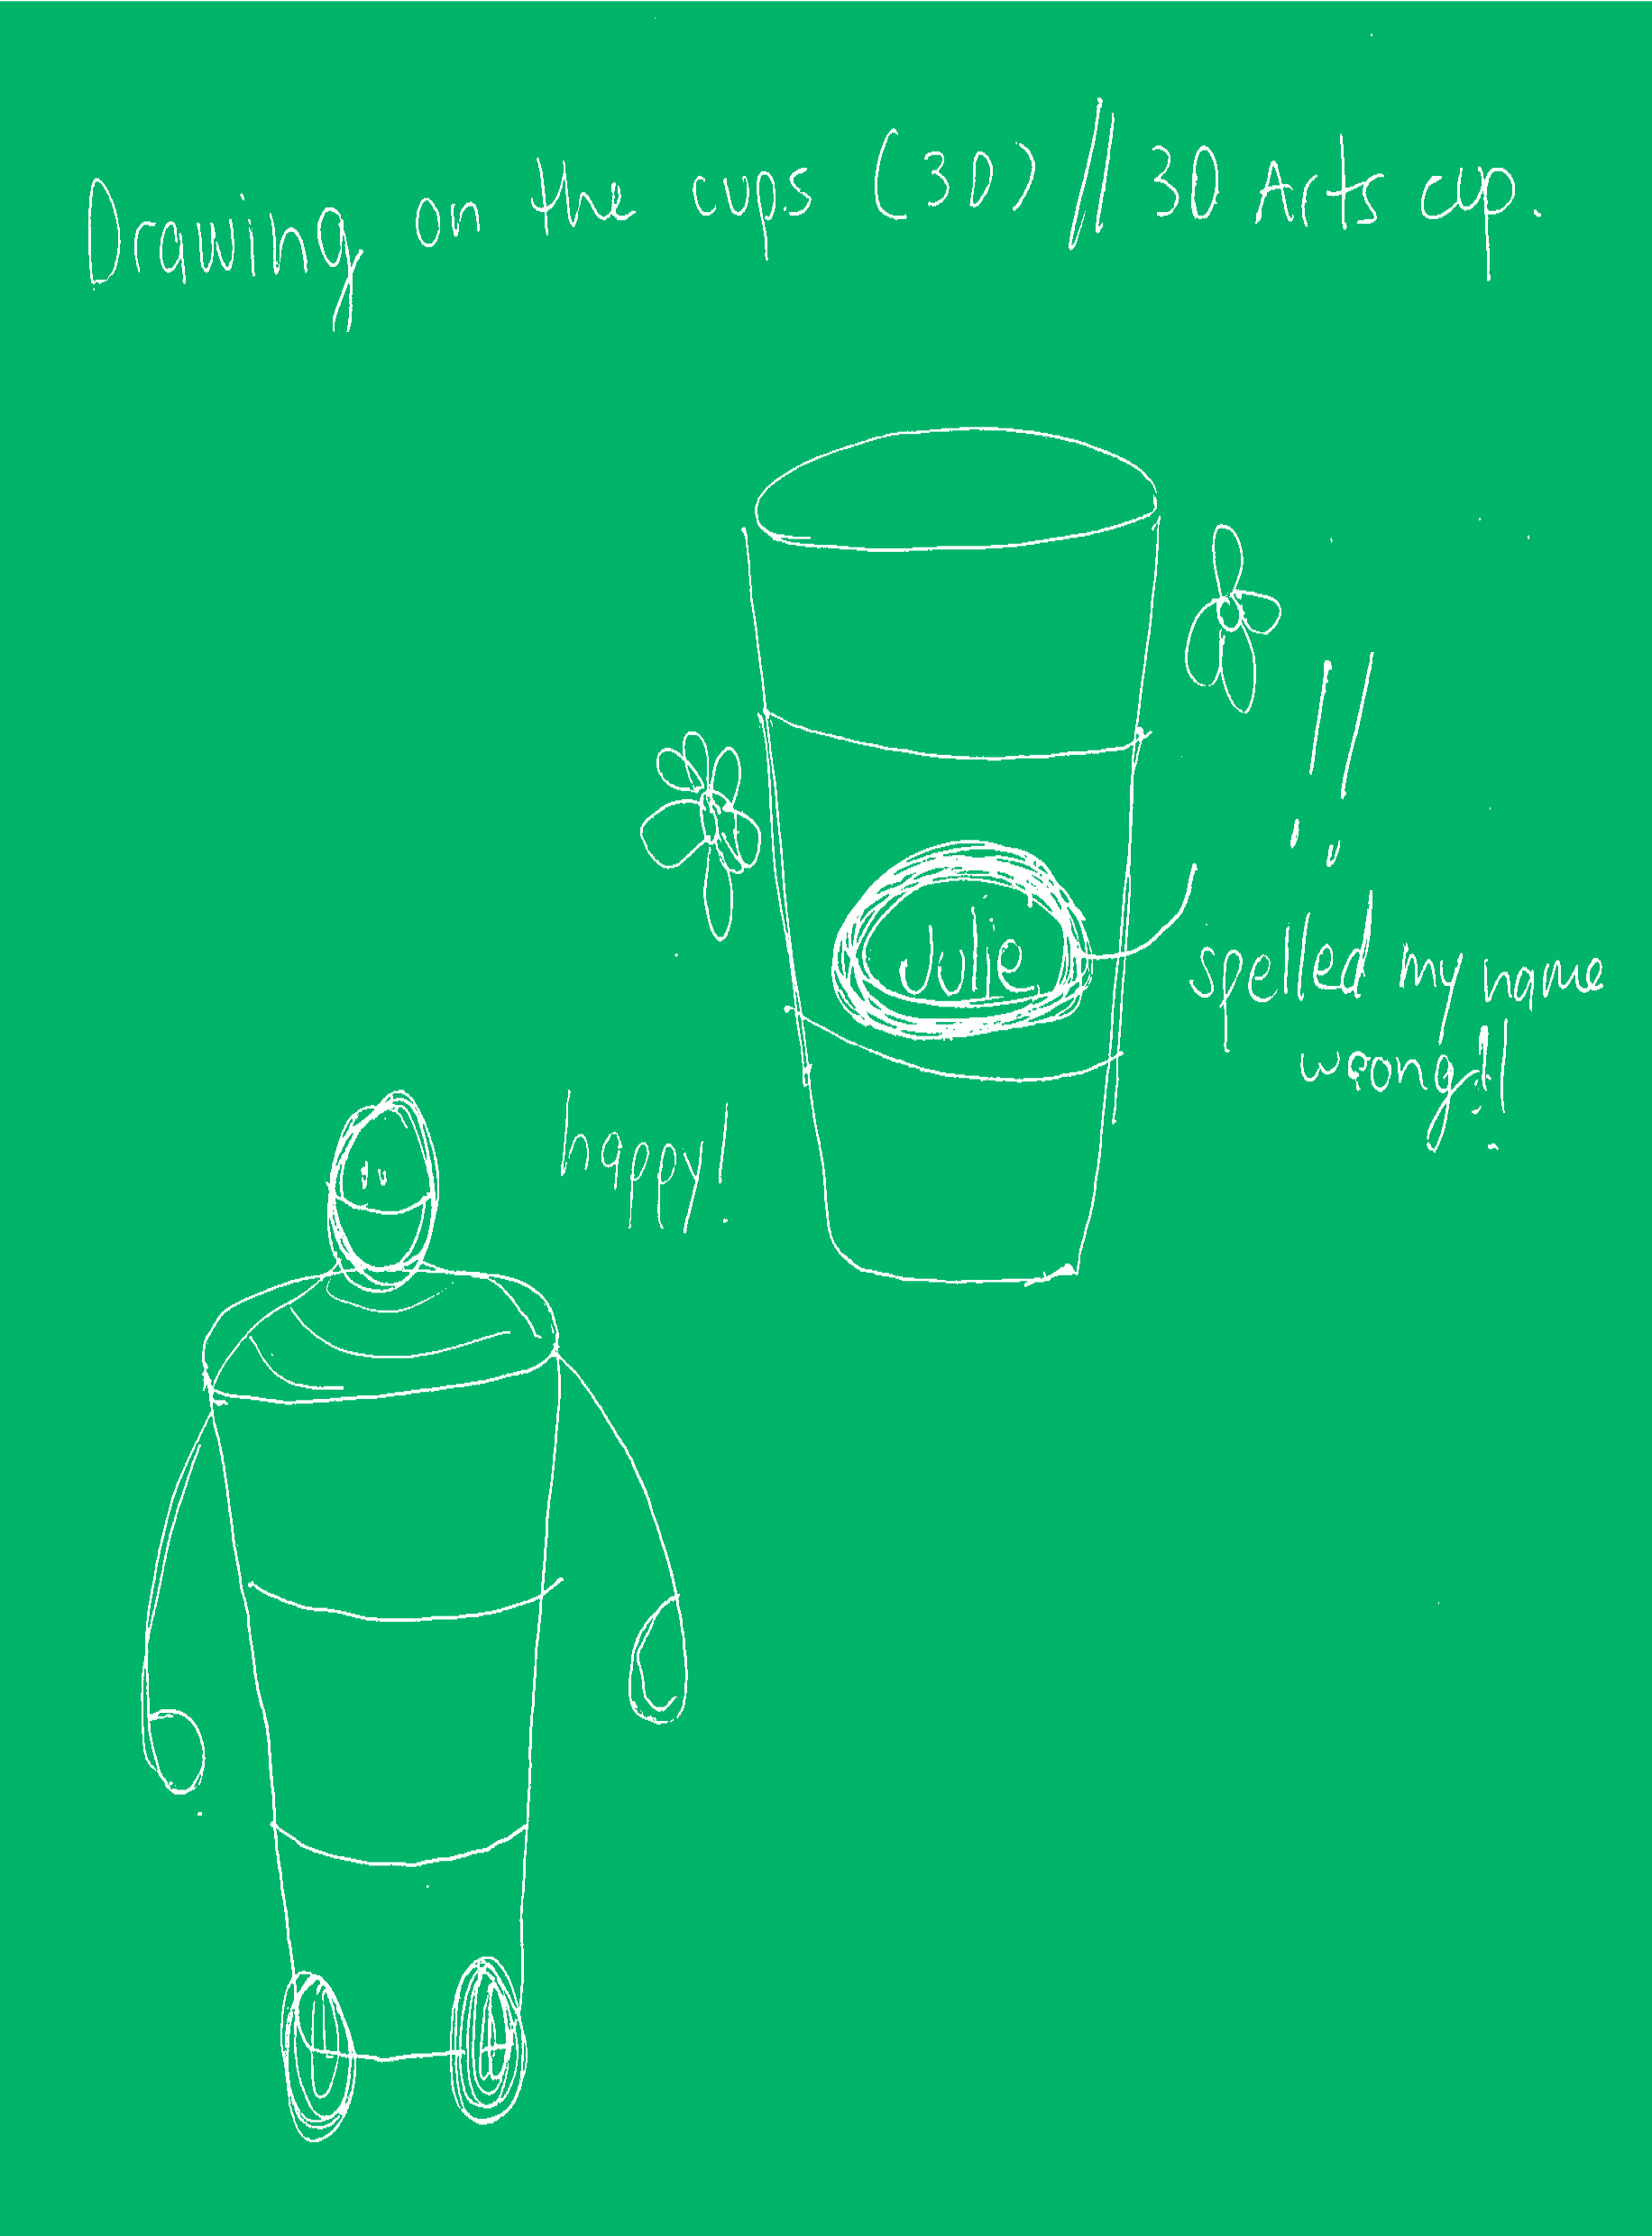 Drawing on the cups (3D) // 3D Arts cup.
!!
Julie
spelled my name
wrong!!
happy!